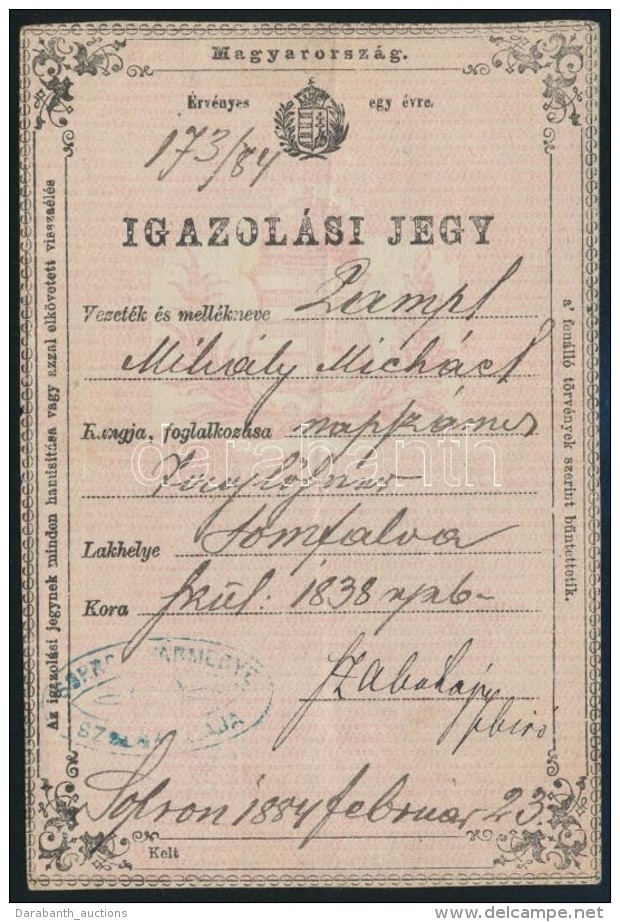 Magyarország.
Érvényes egy évre.
173/84
IGAZOLÁSI JEGY
Vezeték és mellékneve
Mihály Michael
Rangja, foglalkozása napszámos
Taglöhner
Lakhelye Somfalva
Kora szül: 1838
SOPRON VÁRMEGYE
Sopron 1884 február 23.
Kelt
Az igazolási jegynek minden hamisitása vagy azzal elkövetett visszaélés
a' fenálló törvények szerint büntettetik.
darabanth
Darabanth_auctions
delcampe.net